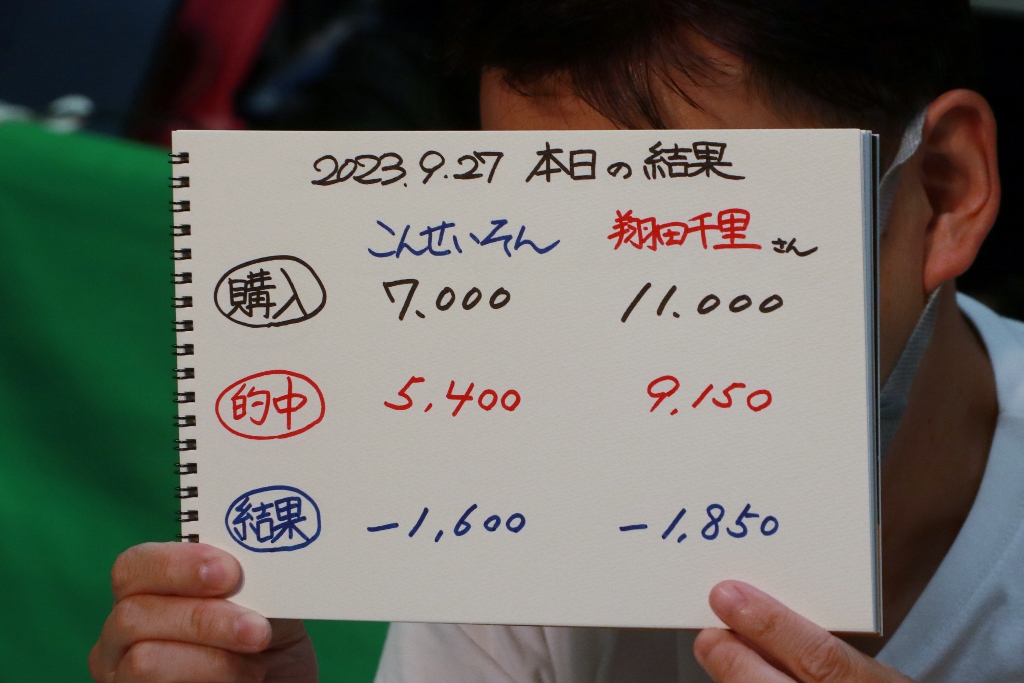 2023.9.27 本日の結果
こんせいそん 翔田千里さん
購入 7.000 11.000
的中 5,400 9.150
結果 -1,600 -1,850